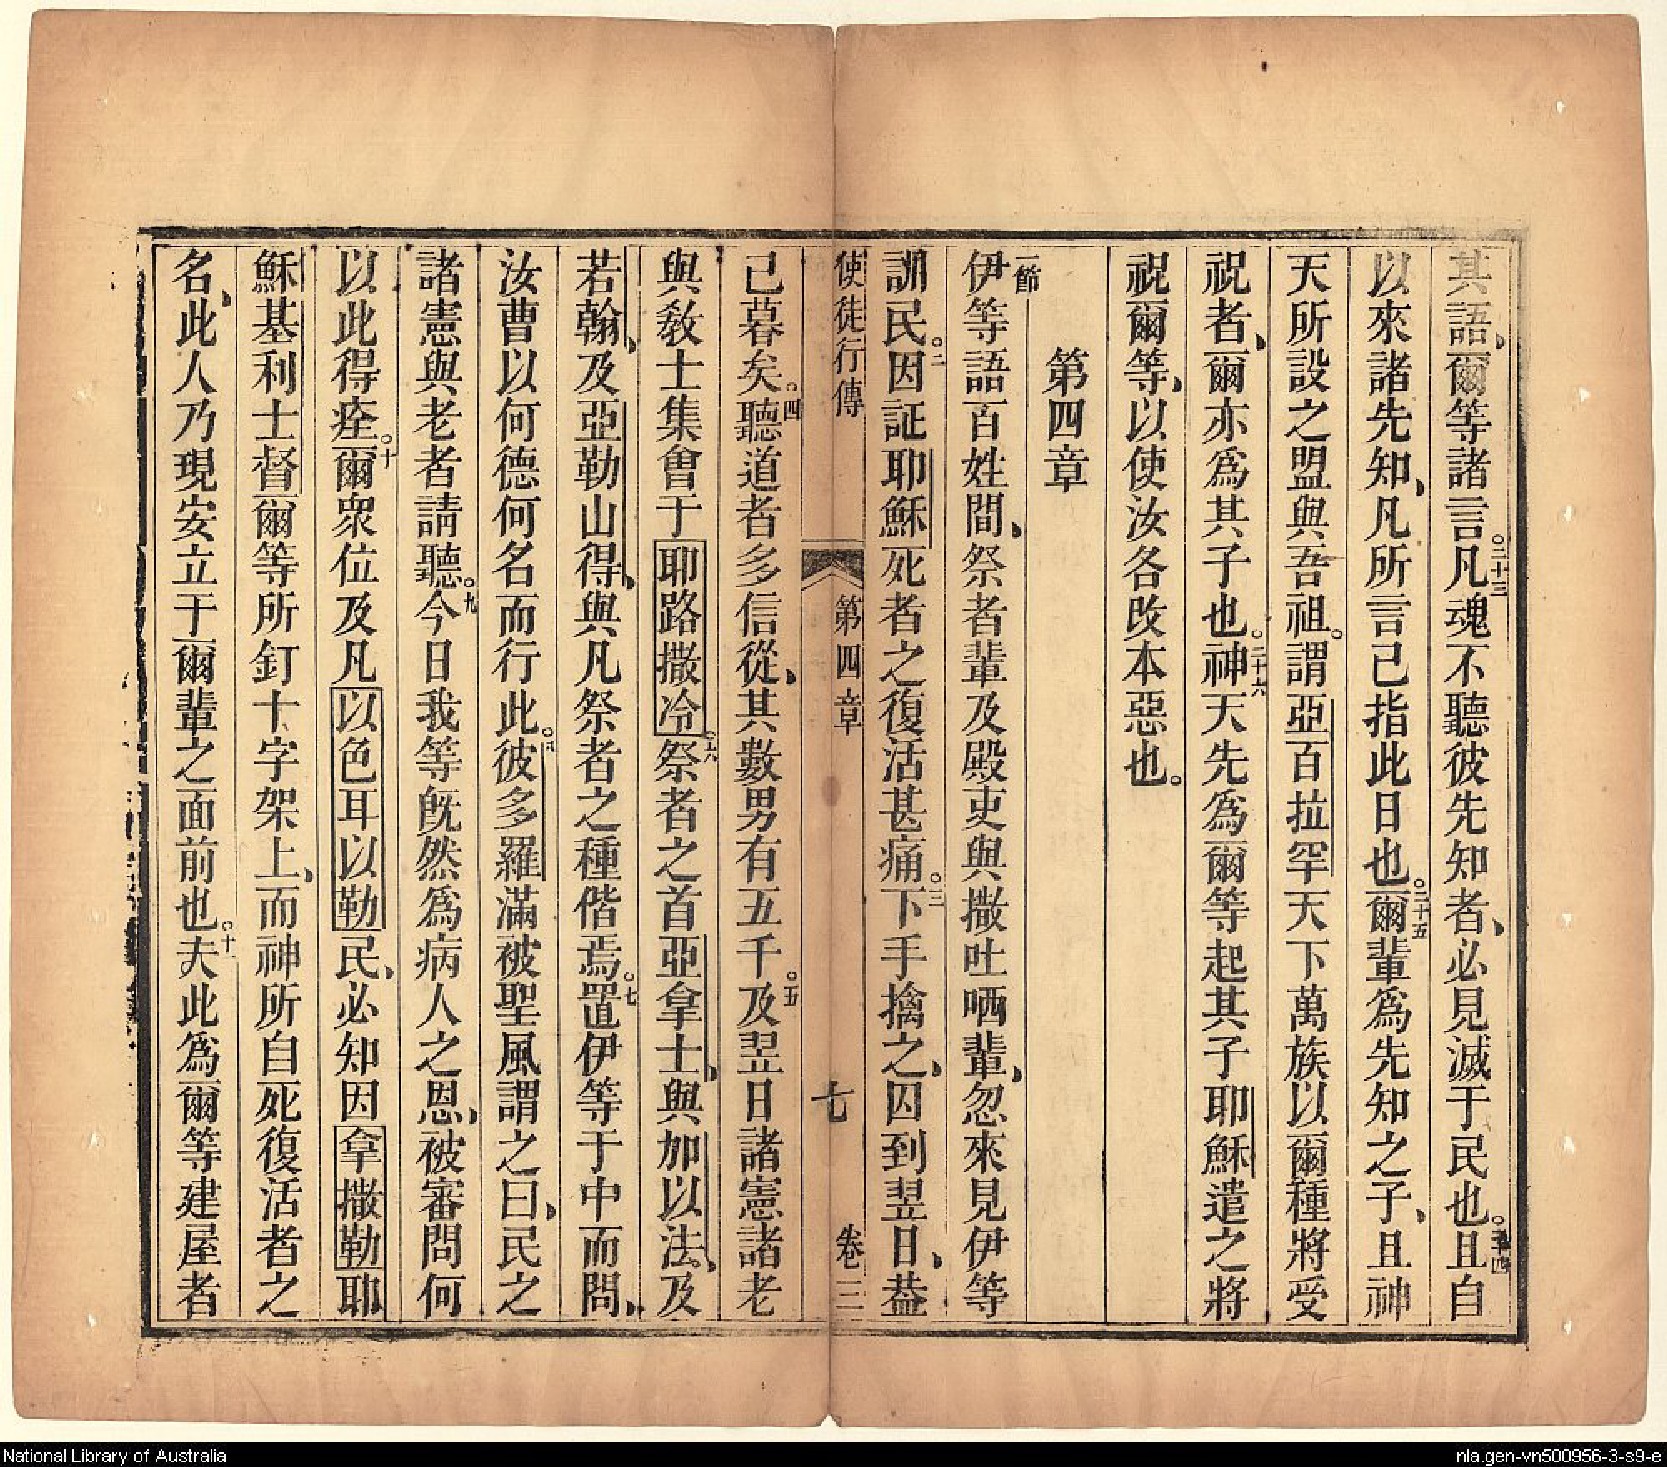 其語、爾等諸言。二十三凡魂不聽彼先知者、必見滅于民也。二十四且自
以來諸先知、凡所言已指此日也。二十五爾輩爲先知之子、且神
天所設之盟與吾祖。謂亞百拉罕天下萬族以爾種將受
祝者、爾亦爲其子也。二十六神天先爲爾等起其子耶穌遣之將
祝爾等、以使汝各改本惡也。
第四章
一節伊等語百姓間、祭者輩及殿吏與撒吐哂輩、忽來見伊等
訓民。二因証耶穌死者之復活甚痛。三下手擒之、囚到翌日、葢
使徒行傳 第四章 七 卷三
已暮矣。四聽道者多信從、其數男有五千。五及翌日諸憲諸老
與教士集會于耶路撒冷。六祭者之首亞拿士、與加以法、及
若翰、及亞勒山得、與凡祭者之種偕焉。七置伊等于中而問、
汝曹以何德何名而行此。八彼多羅滿被聖風謂之曰、民之
諸憲與老者請聽。九今日我等既然爲病人之恩、被審問何
以此得痊。十爾衆位及凡以色耳以勒民、必知因拿撒勒耶
穌基利士督爾等所釘十字架上、而神所自死復活者之
名、此人乃現安立于爾輩之面前也。十夫此爲爾等建屋者
National Library of Australia
nla.gen-vn500956-3-s9-e